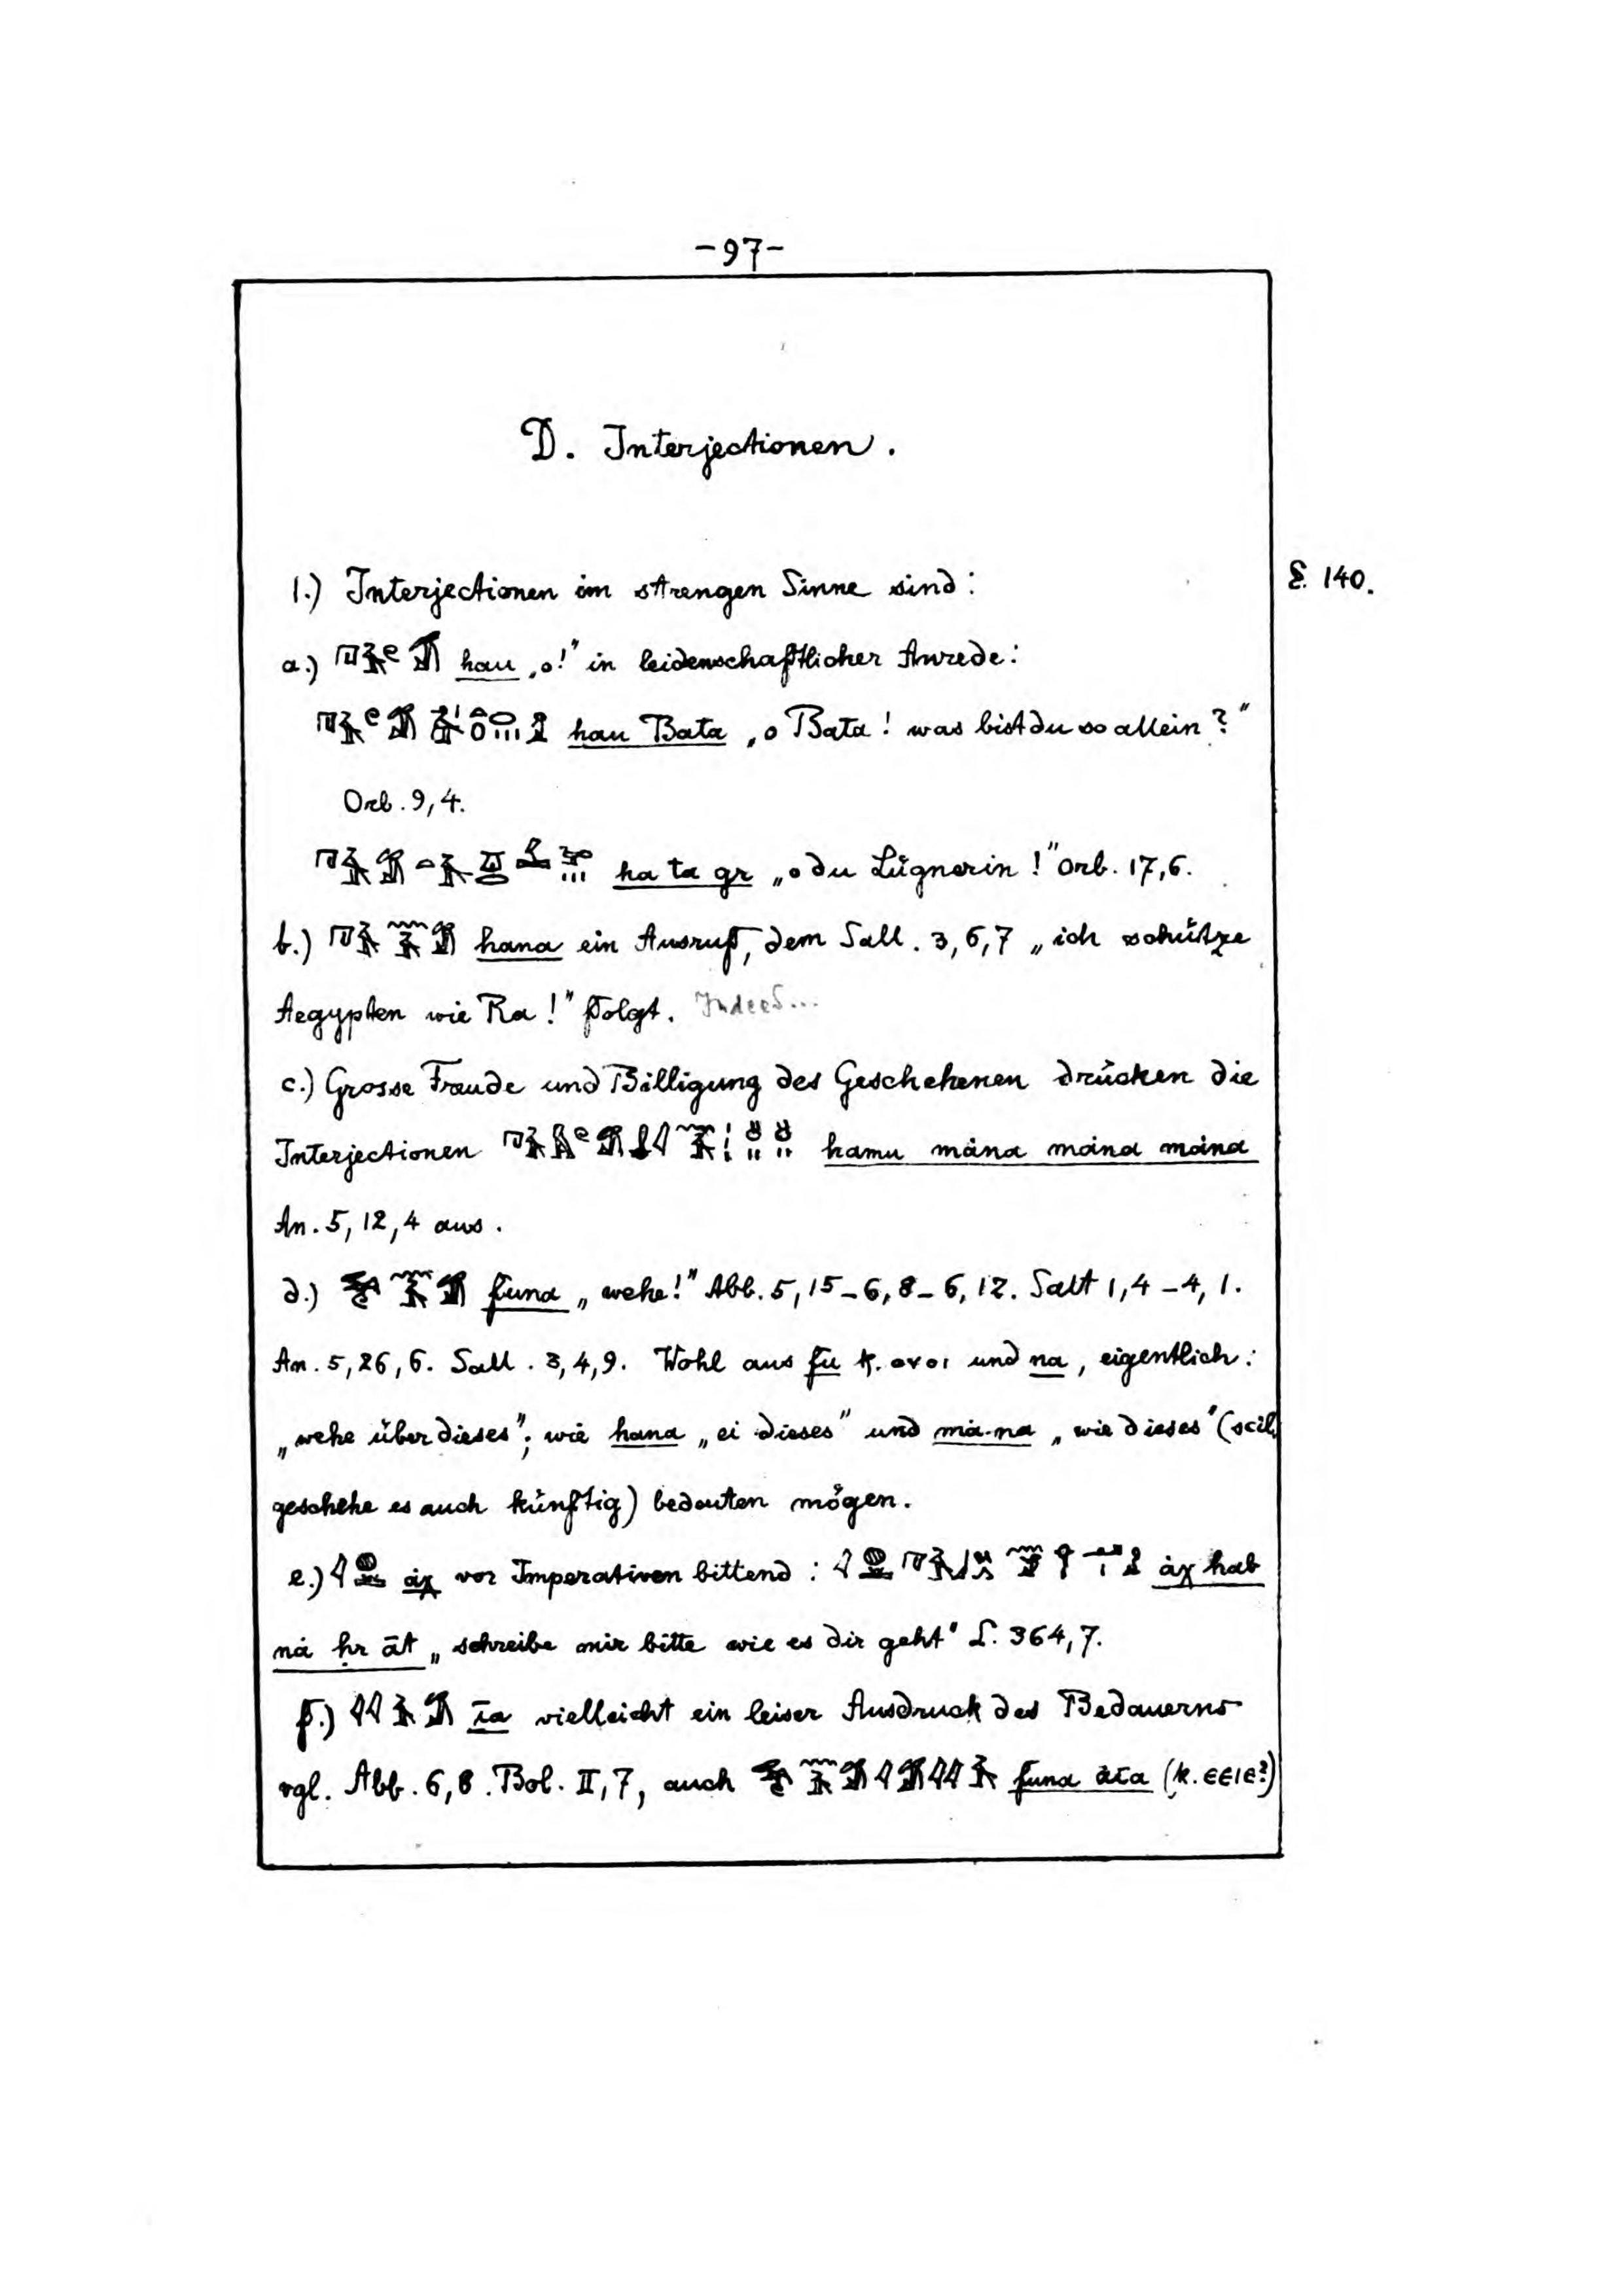 -97-
D. Interjectionen.
1.) Interjectionen im strengen Sinne sind:
§. 140.
a.) hau „o!" in leidenschaftlicher Anrede:
hau Bata „o Bata! was bist du so allein?"
Orb. 9,4.
ha ta gr „o du Lügnerin!" Orb. 17,6.
b.) hana ein Ausruf, dem Sall. 3,6,7 „ich schütze
Aegypten wie Ra!" folgt. Indeed...
c.) Grosse Freude und Billigung des Geschehenen drücken die
Interjectionen hamu màna màna màna
An. 5,12,4 aus.
d.) funa „wehe!" Abb. 5,15-6,8-6,12. Salt 1,4-4,1.
An. 5,26,6. Sall. 3,4,9. Wohl aus fu k. ⲟⲩⲟⲓ und na, eigentlich:
„wehe über dieses"; wie hana „ei dieses" und mà-na „wie dieses" (scil.
geschehe es auch künftig) bedeuten mögen.
e.) àχ vor Imperativen bittend: àχ hab
nà ḥr āt „schreibe mir bitte wie es dir geht" L. 364,7.
f.) īa vielleicht ein leiser Ausdruck des Bedauerns
vgl. Abb. 6,8. Bol. II,7, auch funa àīa (k. ⲉⲉⲓⲉ?)